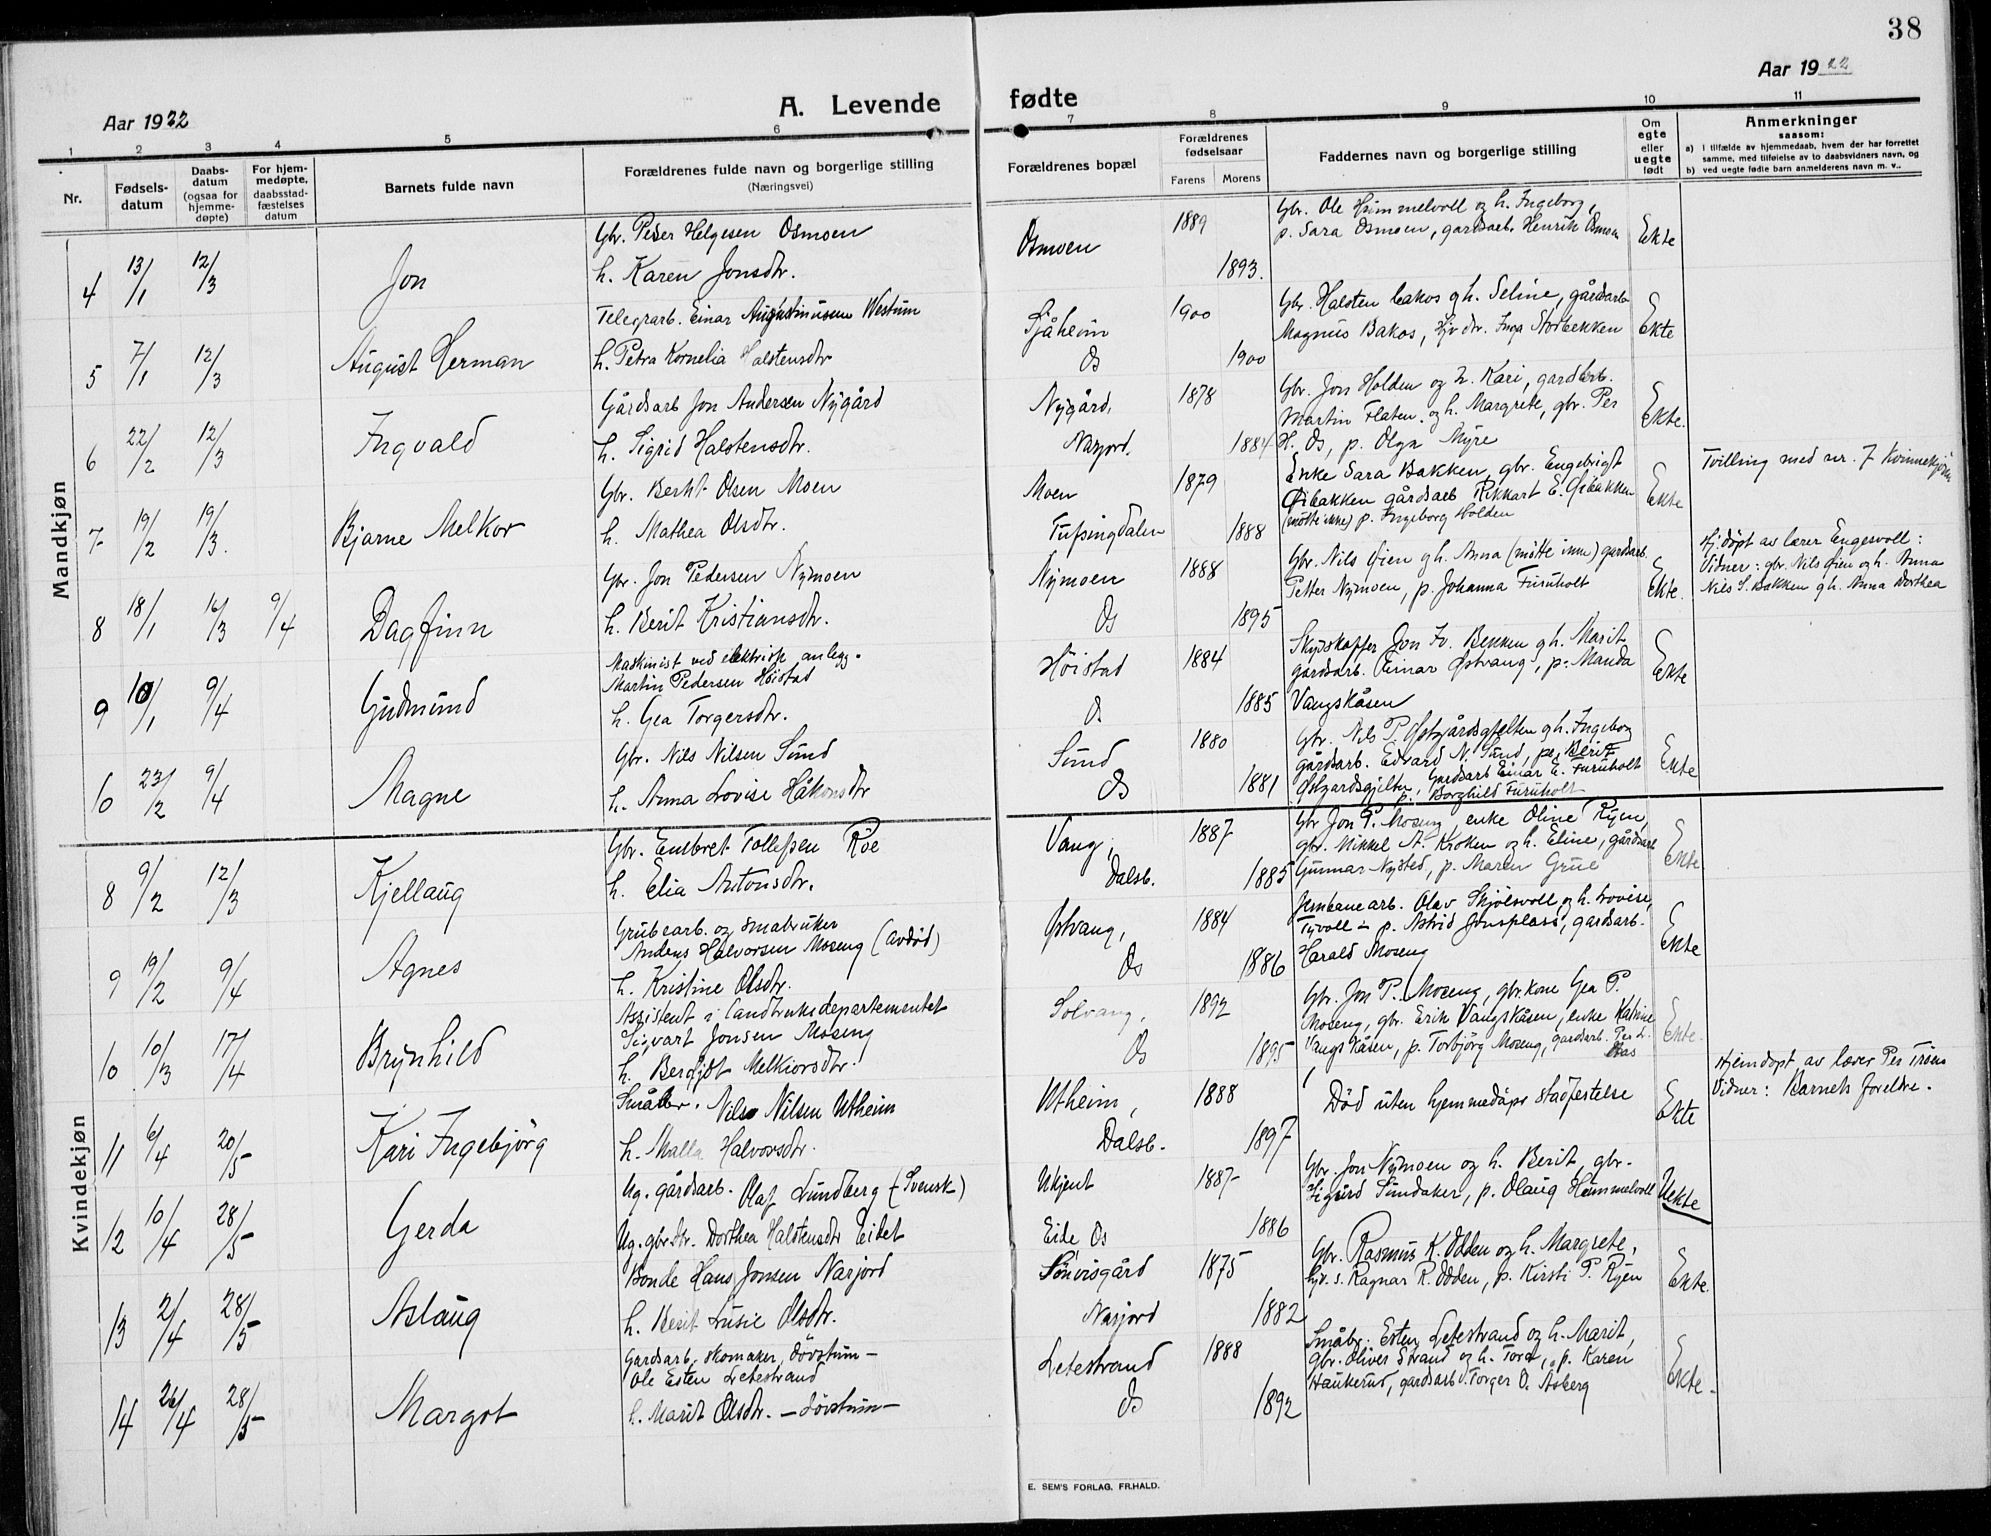 38
Aar 1922
A. Levende fødte
Aar 1922
1 2 3 4 5 6 7 8 9 10 11
Nr.
Fødsels-
datum
Daabs-
datum
(ogsaa for
hjemme-
døpte)
For hjem-
medøpte,
daabsstad-
fæstelses
datum
Barnets fulde navn
Forældrenes fulde navn og borgerlige stilling
(Næringsvei)
Forældrenes bopæl
Forældrenes
fødselsaar
Farens Morens
Faddernes navn og borgerlige stilling
Om
egte
eller
uegte
født
Anmerkninger
saasom:
a) i tilfælde av hjemmedaab, hvem der har forrettet
samme, med tilføielse av to daabsvidners navn, og
b) ved uegte fødte barn anmelderens navn m. v..
Mandkjøn
4 13/1 12/3 Jon
Gbr. Peder Helgesen Osmoen
h. Karen Jonsdtr.
Osmoen
1889
1893.
Gbr. Ole Himmelvoll og h. Ingeborg,
p. Sara Osmoen, gardsarb. Henrik Osmoen
Ekte
5 7/1 12/3 August Herman
Telegrarb. Einar Augustinusen Westum
h. Petra Kornelia Halstensdtr
Sjåheim
Os
1900
1900
Gbr. Halsten Bakos og h. Seline, gårdsarb
Magnus Bakos, Gbr dtr. Inga Storbekken
Ekte
6 22/2 12/3 Ingvald
Gårdsarb Jon Andersen Nygård
h. Sigrid Halstensdtr.
Nygård,
Narjord.
1878
1884
Gbr. Jon Holden og h. Kari, gardbrb.
Martin Flaten og h. Margrete, gbr. Per
H. Os, p. Olga Myre
Ekte.
7 19/2 19/3. Bjarne Melkor
Gbr. Bernt Olsen Moen
h. Mathea Olsdtr.
Moen
Tufsingdalen
1879
1888
Enke Sara Bakken, gbr. Engebrigt
Öibakken gårdsarb Rikkart E. Öibakken
(møtte ikke) p. Ingeborg Holden
Ekte
Tvilling med nr. 7 Kvinnekjön
8 18/1 16/3 9/4 Dagfinn
Gbr. Jon Pedersen Nymoen
h. Berit Kristiansdtr.
Nymoen
Os
1888
1895
Gbr. Nils Øien og h. Anna (møtte inne) gardsarb.
Petter Nymoen, p. Johanna Furuholt
Ekte.
Hj. døpt av lærer Engesvoll:
Vidner: gbr. Nils Øien og h. Anna
Nils S. Bakken og h. Anna Dorthea
9 10/1 9/4 Gudmund
Maskinist ved elektrisk anlegg.
Martin Pedersen Høistad
h. Gea Torgersdtr.
Höistad
Os
1884
1885
Skydskaffer Jon Fr. Bekken og h. Marit
gårdsarb. Einar Østvang, p. Manda
Vangskåsen
Ekte
10 23/2 9/4 Magne
Gbr. Nils Nilsen Sund
h. Anna Lovise Håkonsdtr
Sund
Os
1880
1881
Gbr. Nils P. Østgårdsgjelten og h. Ingeborg
gårdsarb. Edvard N. Sund, p. Berit
Østgardsgjelten, Gardsarb Einar E. Furuholt
p. Borghild Furuholt
Ekte
Kvindekjøn
8 9/2 12/3 Kjellaug
Gbr. Embret Tollefsen Roe
h. Elia Antonsdtr.
Vang,
Dalsb.
1887
1885
Gbr Jon P. Moseng enke Oline Ryen,
gbr. Mikkel A. Kroken og h. Eline, gårdsarb
Gunnar Nysted, p. Maren Grue
Ekte
9 19/2 9/4 Agnes
Grubearb. og småbruker
Anders Halvorsen Moseng (avdöd)
h. Kristine Olsdtr.
Østvang,
Os
1884
1886
Jernbanearb. Olav Skjølsvoll og h. Lovise,
Tyvoll - p. Astrid Jonsplass, gardsarb.
Harald Moseng
Ekte
10 10/3 17/4 Brynhild
Assistent i Landbruksdepartementet
Sigvart Jonsen Moseng
h. Bergljot Melkiorsdtr.
Solvang,
Os
1892
1895
Gbr. Jon P. Moseng, gbr.kone Gea P.
Moseng, gbr. Erik Vangskåsen, enke Katrine
Vangskåsen, p. Torbjörg Moseng, gardsarb. Per L.
Ekte.
11 6/4 20/5 Kari Ingebjörg
Småbr. Nils Nilsen Utheim
h. Malla Halvorsdtr.
Utheim,
Dalsb.
1888
1897
Död uten hjemmedåps stadfestelse
Ekte
Hjemdøpt av lærer Per Trøen
Vidner: Barnets foreldre.
12 10/4 28/5 Gerda
Ug. gårdsarb. Olaf Lundberg (Svensk)
Ug. gbr.dtr. Dorthea Halstensdtr Eidet
Ukjent
Eide Os
1887
1886
Gbr. Jon Nymoen og h. Berit, gbr.
Sigurd Sundaker, p. Olaug Hummelvoll
Uekte
13 2/4 28/5 Aslaug
Bonde Hans Jonsen Narjord
h. Berit Lusie Olsdtr.
Sönvisgård
Narjord
1875
1882
Gbr. Rasmus K. Odden og h. Margrete,
Gbr. s. Ragnar R. Odden, p. Kirsti P. Ryen
Ekte.
14 26/4 28/5 Margot
Gardsarb. skomaker, dövstum -
Ole Esten Letestrand
h. Marit Olsdtr. - dövstum -
Letestrand
Os
1888
1892
Småbr. Esten Letestrand og h. Marit,
gbr. Oliver Strand og h. Tora, p. Karen
Haukerud, gardsarb. Torger O. Aasberg
Ekte.
E. SEM'S FORLAG, FR.HALD.